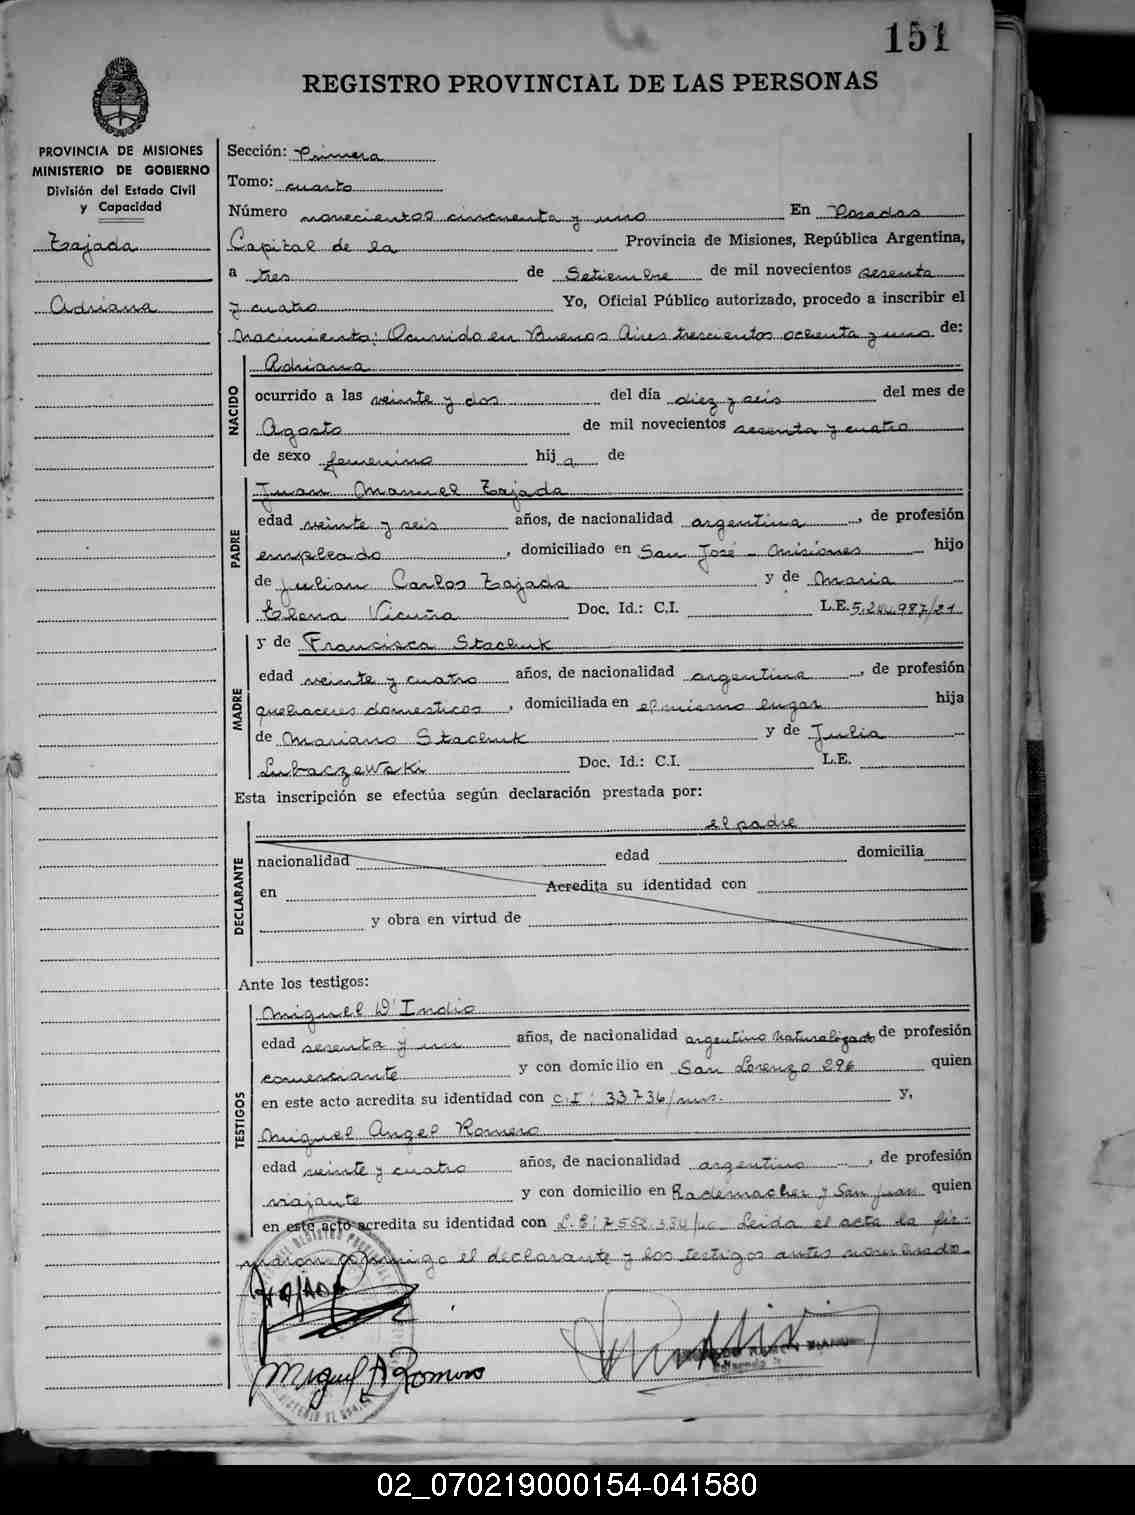 151
REGISTRO PROVINCIAL DE LAS PERSONAS
PROVINCIA DE MISIONES
MINISTERIO DE GOBIERNO
División del Estado Civil
y Capacidad
Tajada
Adriana
Sección: Primera
Tomo: cuarto
Número novecientos cincuenta y uno En Posadas
Capital de la Provincia de Misiones, República Argentina,
a tres de Setiembre de mil novecientos sesenta
y cuatro Yo, Oficial Público autorizado, procedo a inscribir el
Nacimiento: Ocurrido en Buenos Aires trescientos ochenta y uno de:
NACIDO
Adriana
ocurrido a las veinte y dos del día diez y seis del mes de
Agosto de mil novecientos sesenta y cuatro
de sexo femenino hija de
PADRE
Juan Manuel Tajada
edad veinte y seis años, de nacionalidad argentina, de profesión
empleado, domiciliado en San José - Misiones hijo
de Julian Carlos Tajada y de Maria
Elena Vicuña Doc. Id.: C.I. L.E.
MADRE
y de Francisca Stachuk
edad veinte y cuatro años, de nacionalidad argentina, de profesión
quehaceres domesticos, domiciliada en el mismo lugar hija
de Mariano Stachuk y de Julia
Lubaczewski Doc. Id.: C.I. L.E.
Esta inscripción se efectúa según declaración prestada por:
DECLARANTE
el padre
nacionalidad edad domicilia
en Acredita su identidad con
y obra en virtud de
Ante los testigos:
TESTIGOS
Miguel D'Indio
edad sesenta y un años, de nacionalidad argentino Naturalizado de profesión
comerciante y con domicilio en San Lorenzo 296 quien
en este acto acredita su identidad con C.I: 33736/mns. y,
Miguel Angel Romero
edad veinte y cuatro años, de nacionalidad argentino, de profesión
viajante y con domicilio en Rademacher y San Juan quien
en este acto acredita su identidad con L.E: Leida el acta la fir-
maron conmigo el declarante y los testigos antes nombrado
Tajada
Miguel A Romero
02_070219000154-041580